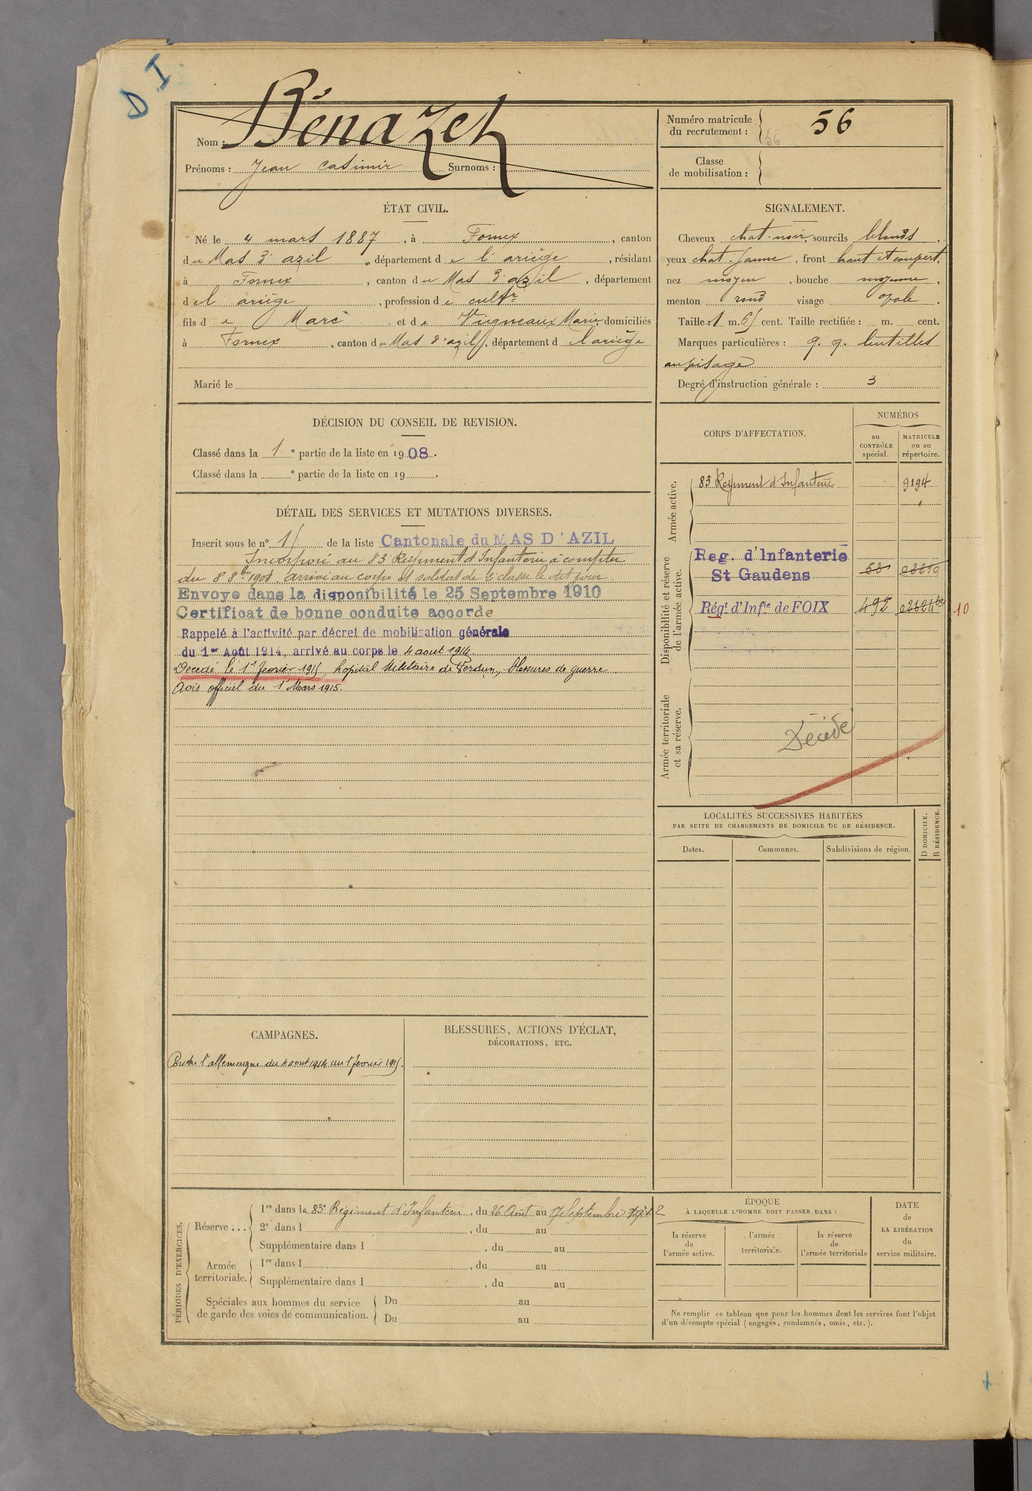 D I
Nom : Bénazeh
Prénoms : Jean Casimir Surnoms :
Numéro matricule du recrutement : 56
Classe de mobilisation :
ÉTAT CIVIL.
Né le 4 mars 1887, à Fornex, canton
du Mas d'azil, département de l'ariège, résidant
à Fornex, canton du Mas d'azil, département
de l'ariège, profession de cultr
fils de Marc et de Vigneaux Marie domiciliés
à Fornex, canton du Mas d'azil, département d l'ariège
Marié le
SIGNALEMENT.
Cheveux chat-noir, sourcils blonds,
yeux chat-jaune, front haut et couvert,
nez moyen, bouche moyenne,
menton rond visage ovale.
Taille : 1 m. 61 cent. Taille rectifiée : m. cent.
Marques particulières : q. q. lentilles
au visage
Degré d'instruction générale : 3
DÉCISION DU CONSEIL DE REVISION.
Classé dans la 1e partie de la liste en 1908.
Classé dans la e partie de la liste en 19 .
DÉTAIL DES SERVICES ET MUTATIONS DIVERSES.
Inscrit sous le n° de la liste Cantonale du MAS D'AZIL
Incorporé au 83 Régiment d'Infanterie à compter
du 8 8bre 1908 arrivé au corps et soldat de 2e classe le dit jour
Envoye dans la disponibilité le 25 Septembre 1910
Certificat de bonne conduite accorde
Rappelé à l'activité par décret de mobilisation générale
du 1er Août 1914, arrivé au corps le 4 aout 1914.
Décédé le 1er février 1915 hopital Militaire de Verdun, blessures de guerre
Avis officiel du 1er Mars 1915.
CORPS D'AFFECTATION.
NUMÉROS
au CONTRÔLE spécial.
MATRICULE ou au répertoire.
Armée active.
83 Régiment d'Infanterie 9194
Disponibilité et réserve de l'armée active.
Reg. d'Infanterie
St Gaudens
Régt d'Infie de FOIX 492 10
Armée territoriale et sa réserve.
Décédé
LOCALITÉS SUCCESSIVES HABITÉES
PAR SUITE DE CHANGEMENTS DE DOMICILE OU DE RÉSIDENCE.
Dates. Communes. Subdivisions de région. D DOMICILE. R RÉSIDENCE.
CAMPAGNES.
Contre l'allemagne du 4 aout 1914 au 1er février 1915.
BLESSURES, ACTIONS D'ÉCLAT,
DÉCORATIONS, ETC.
PÉRIODES D'EXERCICES.
Réserve ...
1re dans le 83e Régiment d'Infanterie, du 26 Août au 7 Septembre
2e dans l , du au
Supplémentaire dans l , du au
Armée territoriale.
1re dans l , du au
Supplémentaire dans l , du au
Spéciales aux hommes du service de garde des voies de communication.
Du au
Du au
ÉPOQUE
À LAQUELLE L'HOMME DOIT PASSER DANS :
la réserve de l'armée active.
l'armée territoriale.
la réserve de l'armée territoriale
DATE de LA LIBÉRATION du service militaire.
Ne remplir ce tableau que pour les hommes dont les services font l'objet
d'un décompte spécial (engagés, condamnés, omis, etc.).